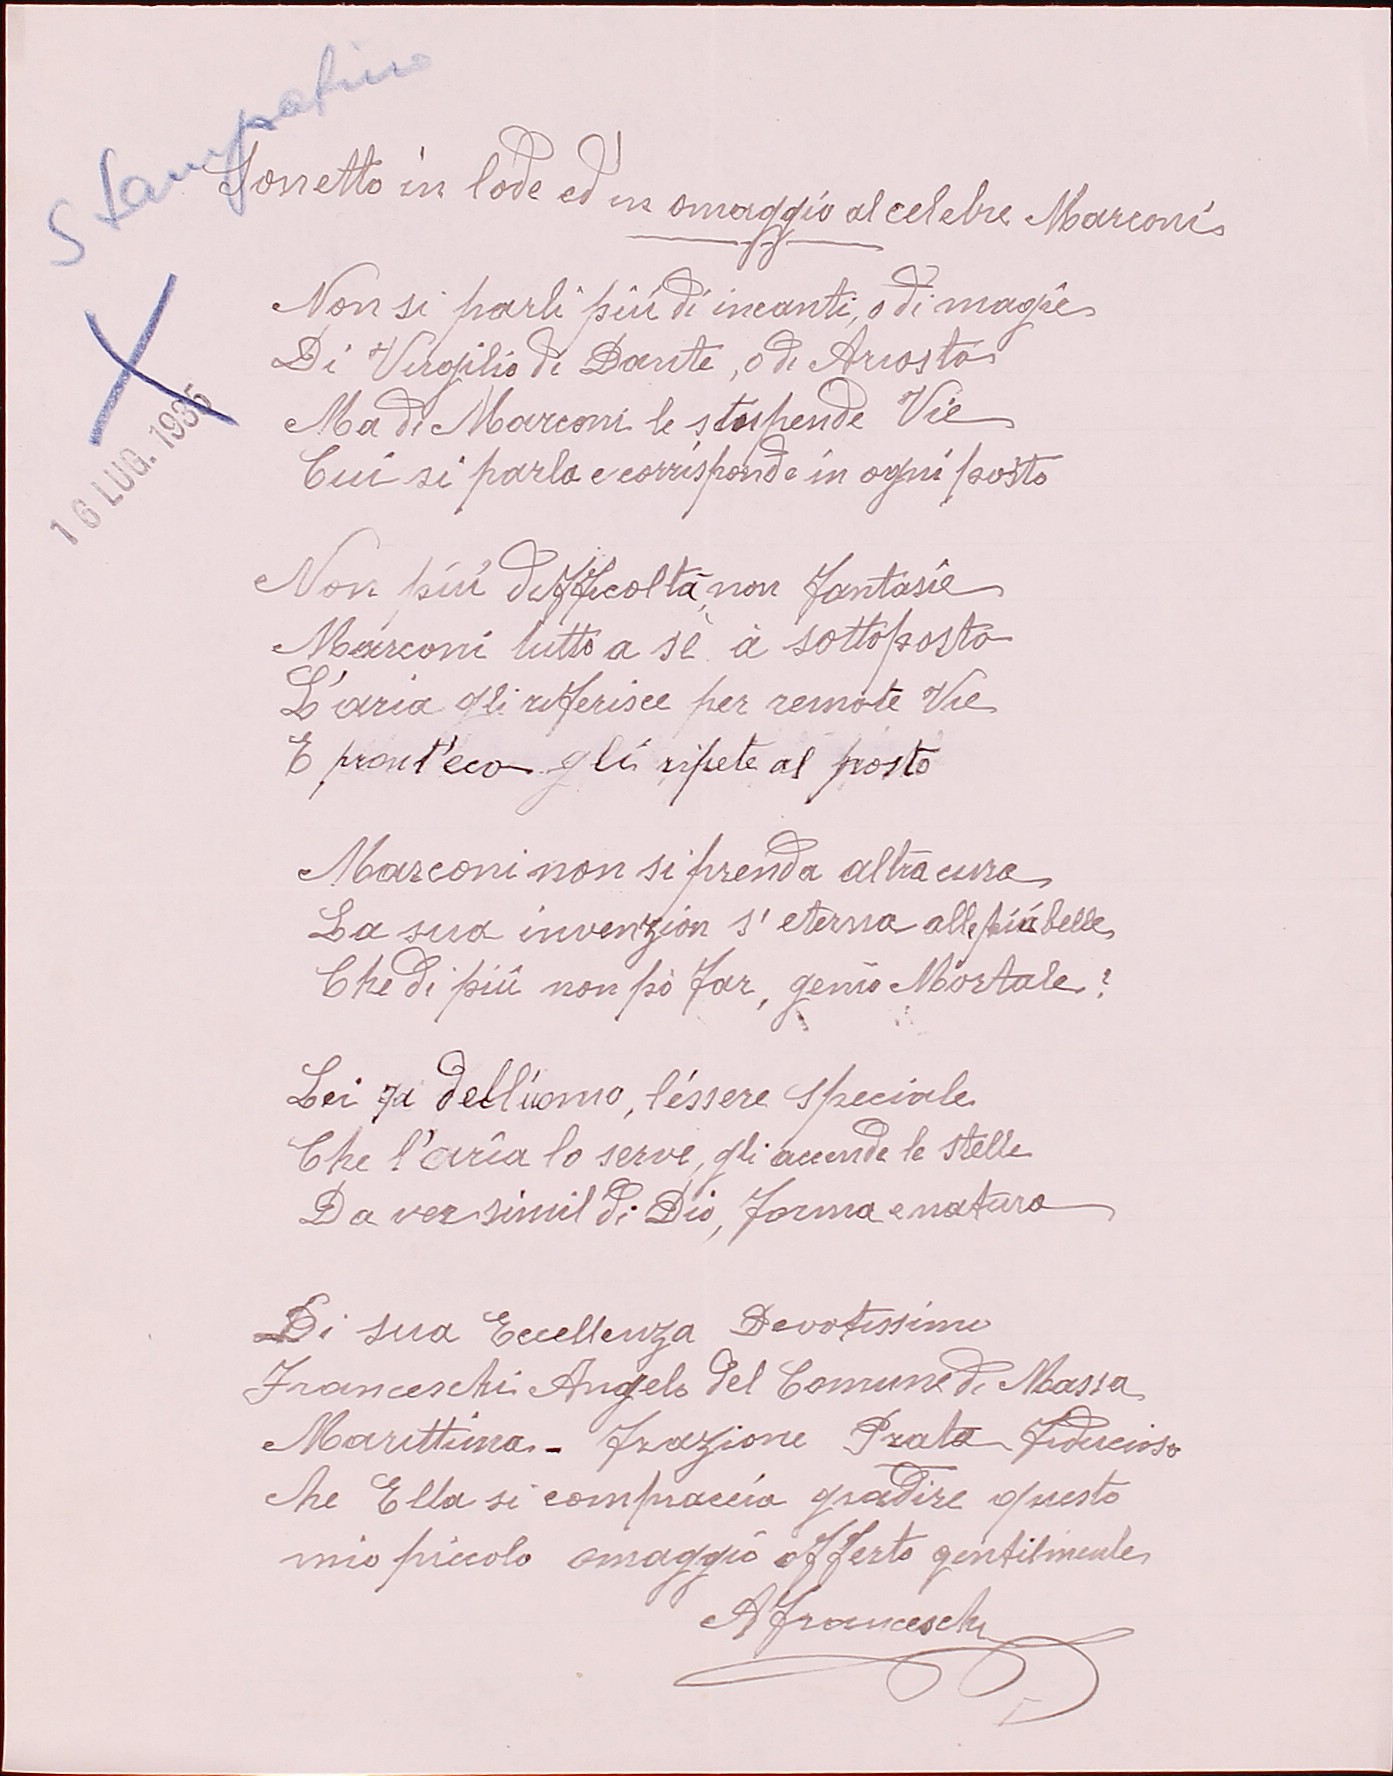 Stampatino
Sonetto in lode ed in omaggio al celebre Marconi
16 LUG. 1935
Non si parli piú di incanti, o di magie
Di Virgilio di Dante, o di Ariosto
Ma di Marconi le stupende Vie
Cui si parla e corrisponde in ogni posto
Non piú difficoltà, non fantasie
Marconi tutto a sè à sottoposto
L'aria gli riferisce per remote Vie
E pront'eco gli ripete al posto
Marconi non si prenda altra cura
La sua invenzion s'eterna alle piú belle
Che di piú non pò far, genio Mortale?
Lei dell'uomo, l'éssere speciale
Che l'aria lo serve, gli accende le stelle
Da ver simil di Dio, forma e natura
Di sua Eccellenza Devotissimo
Franceschi Angelo del Comune di Massa
Marittima - frazione Prata fiducioso
che Ella si compiaccia gradire questo
mio piccolo omaggio offerto gentilmente
A Franceschi